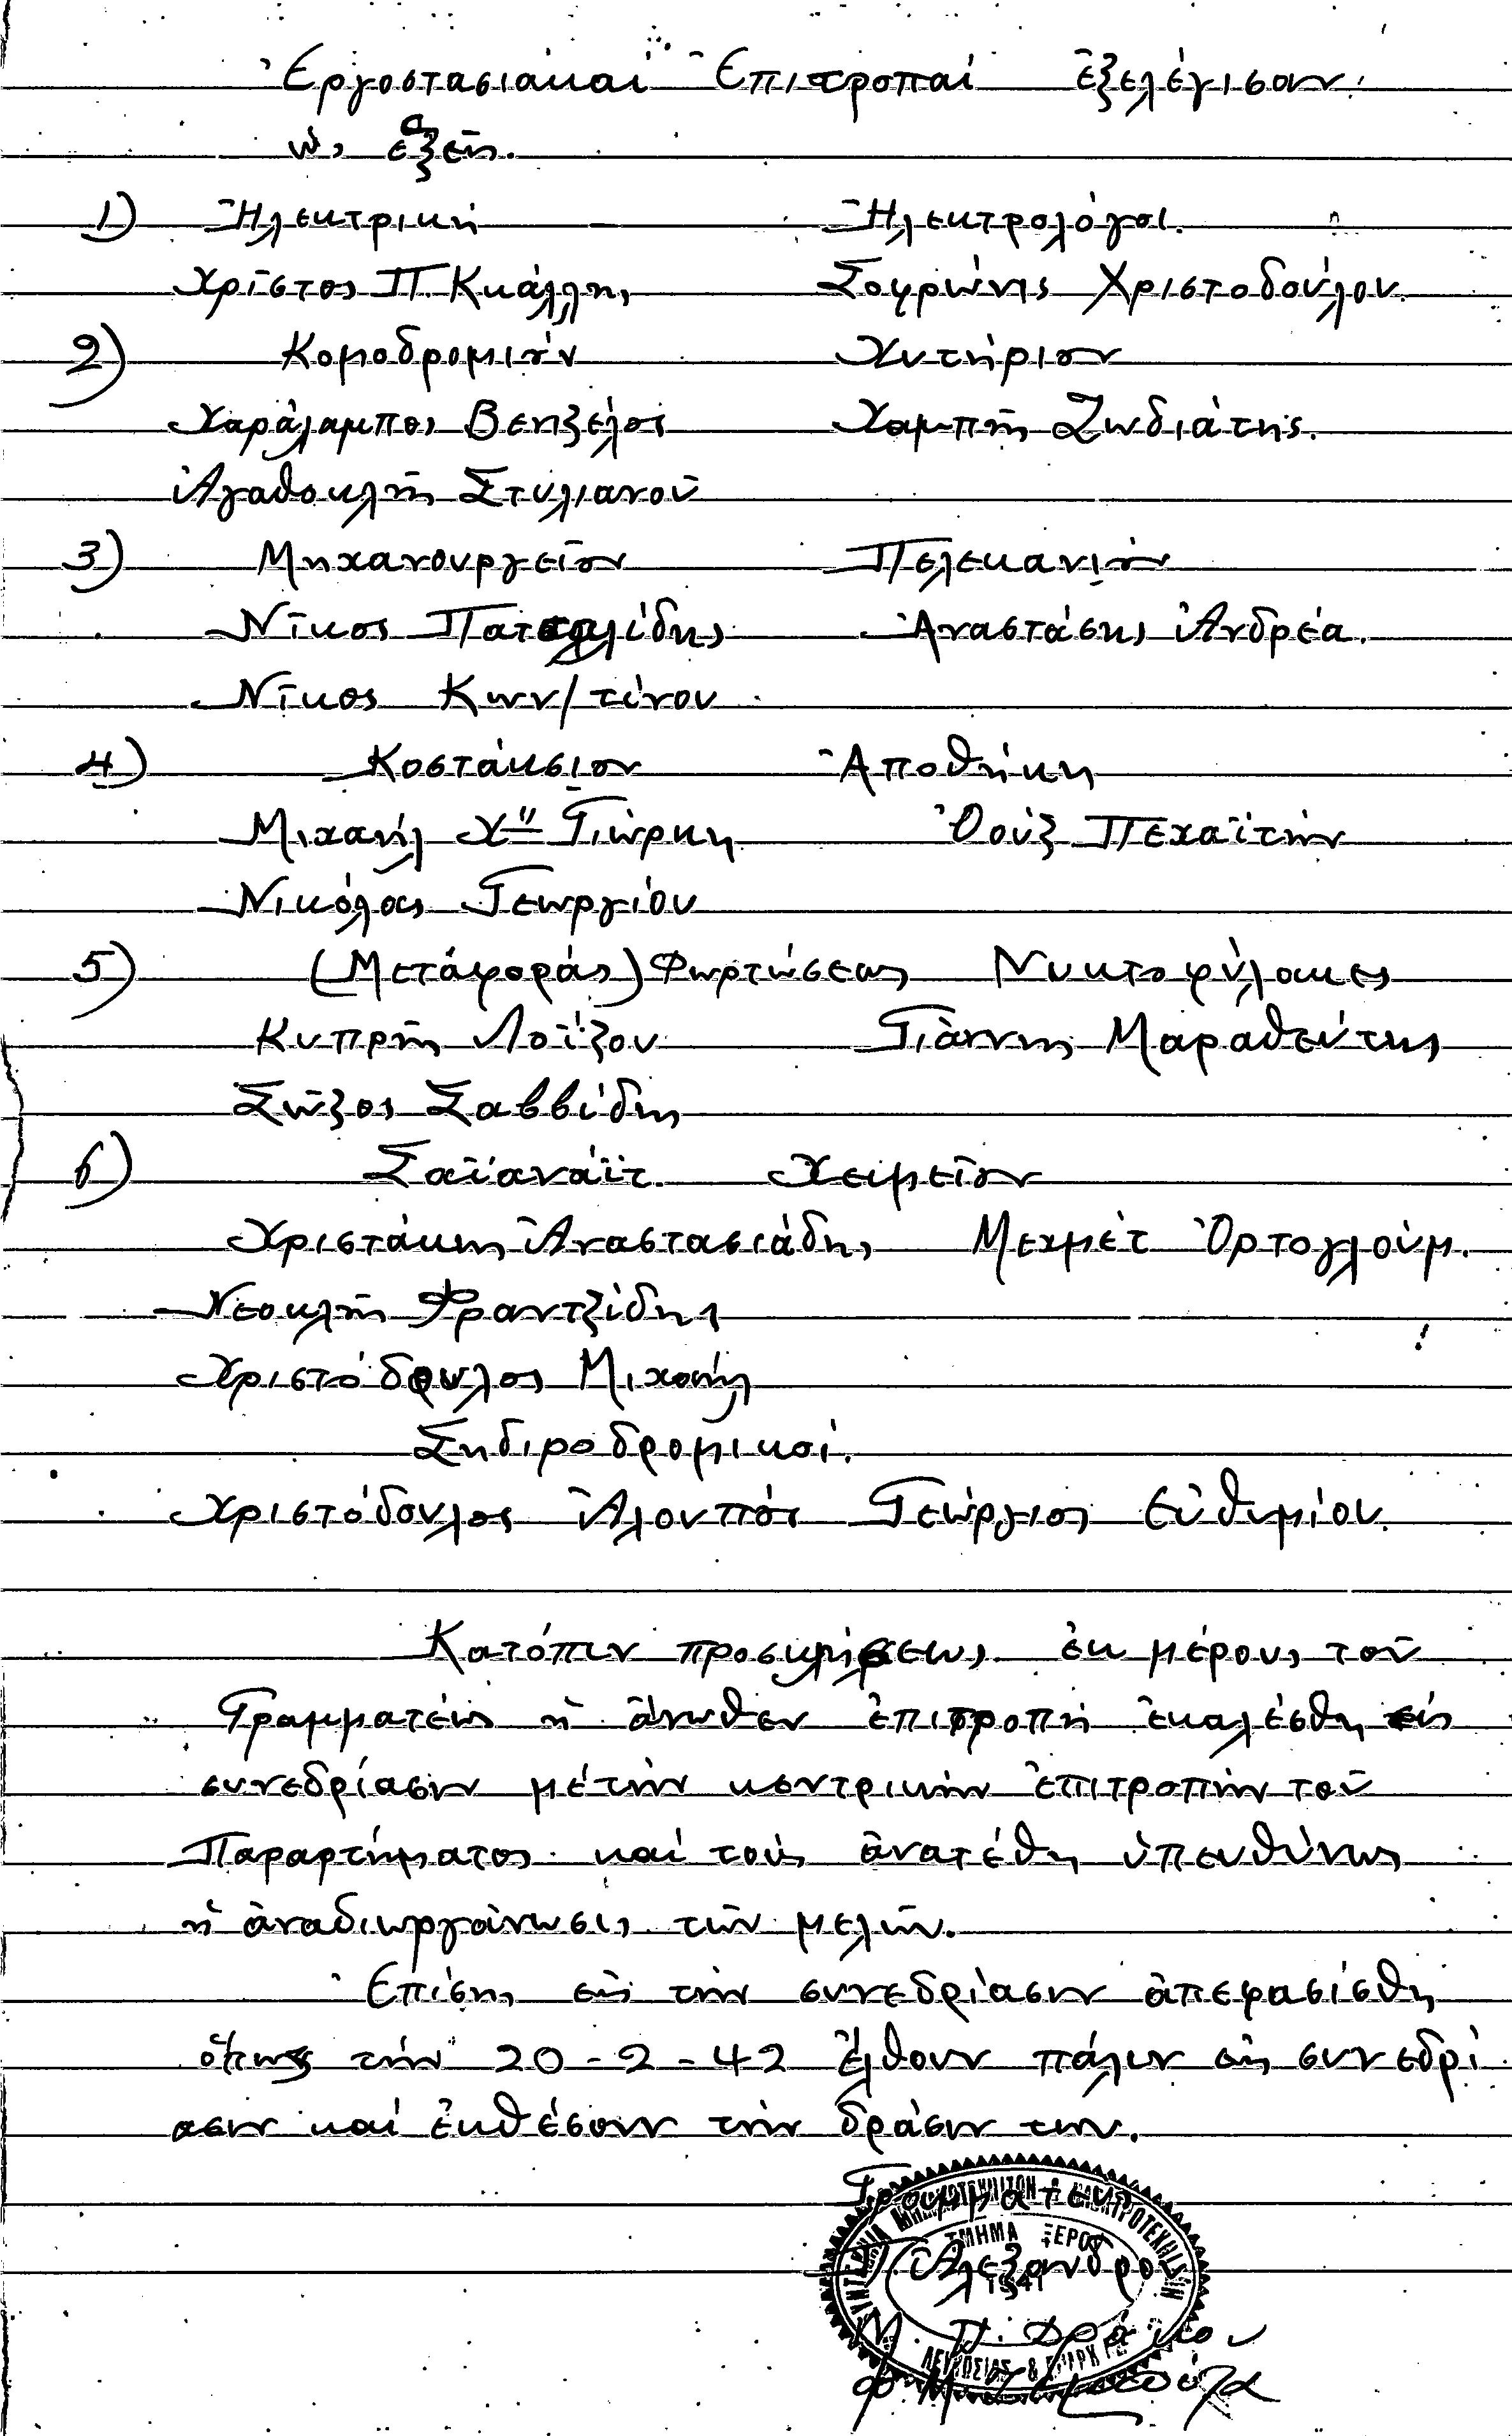 Ἐργοστασιακαί Ἐπιτροπαί ἐξελέγισαν
ὡς ἑξῆς.
1) Ἠλεκτρική Ἠλεκτρολόγοι.
Χρίστος Π. Κκάλλης Σοφρώνις Χριστοδούλου.
2) Κομοδρομιόν Χυτήριον
Χαράλαμπος Βενιζέλος Χαμπῆς Ζωδιάτης.
Ἀγαθοκλῆς Στυλιανοῦ
3) Μηχανουργεῖον Πελεκανιόν
Νῖκος Πατσαλίδης Ἀναστάσης Ἀνδρέα.
Νῖκος Κων/τίνου
4) Κοστάκσιον Ἀποθήκη
Μιχαήλ Χ" Γιώρκη Ὀούζ Πεχαϊτήν
Νικόλας Γεωργίου
5) (Μετάφοράς) Φωρτώσεως Νυκτοφύλακες
Κυπρῆς Λοΐζου Γιάννης Μαραθεύτης
Σῶζος Σαββίδης
6) Σαϊανάϊτ. Χειμεῖον
Χριστάκης Ἀναστασιάδης Μεχμέτ Ὀρτογλούμ.
Νεοκλῆς Φραντζίδης
Χριστόδουλος Μιχαήλ
Σηδιροδρομικοί.
Χριστόδουλος Ἀλουπός Γεώργιος Εὐθυμίου.
Κατόπιν προσκλήσεως ἐκ μέρους τοῦ
Γραμματέως ἡ ἄνωθεν ἐπιτροπή ἐκαλέσθη εἰς
συνεδρίασιν μέ τήν κεντρικήν ἐπιτροπήν τοῦ
Παραρτήματος καί τούς ἀνατέθη ὑπευθύνως
ἡ ἀναδιωργάνωσις τῶν μελῶν.
Ἐπίσης εἰς τήν συνεδρίασιν ἀπεφασίσθη
ὅπως τήν 20-2-42 ἔλθουν πάλιν εἰς συνεδρί
ασιν καί ἐκθέσουν τήν δράσιν των.
Γραμματεύς
Π. Ἀλεξάνδρου
ΤΜΗΜΑ ΞΕΡΟΥ
1941
Μ. Π. Δράκου
ΛΕΥΚΩΣΙΑΣ &